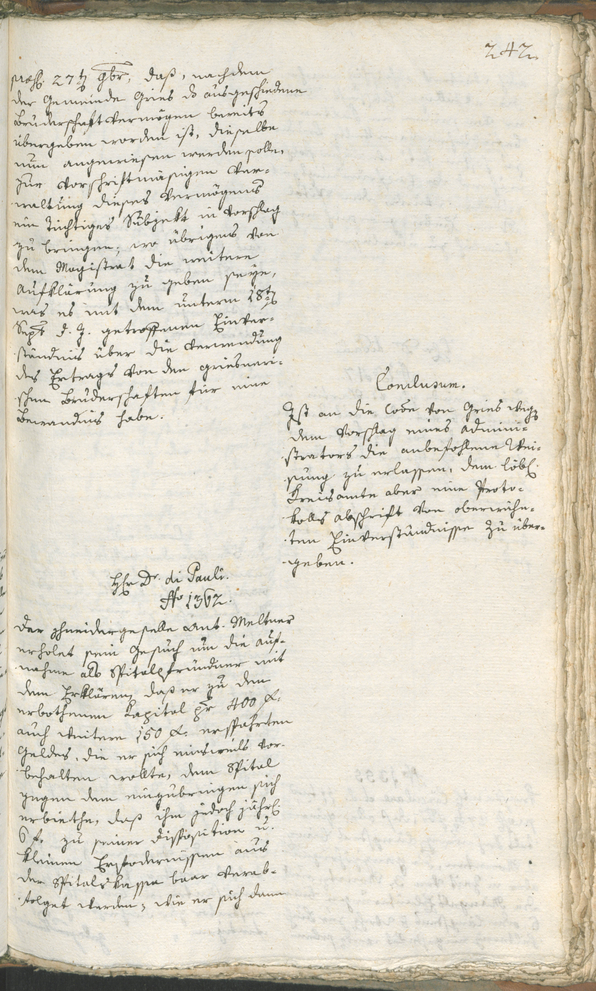 242
praes. 27t 9br, daß, nachdem
der Gemeinde Gries das ausgeschiedene
Bruderschaftvermögen bereits
übergeben worden ist, dieselbe
nun angewiesen werden solle,
zur vorschriftmäsigen Ver-
waltung dieses Vermögens
ein tüchtiges Subjekt in Vorschlag
zu bringen; wo übrigens von
dem Magistrat die weitere
Aufklärung zu geben seye,
was es mit dem unterm 28t
Sept. d. J. getroffenen Einver-
ständniß über die Verwendung
des Ertrags von den griesneri-
schen Bruderschaften für eine
Bewandniß habe.
Conclusum.
Ist an die von Gries wegen
dem Vorschlag eines Admini-
strators die anbefohlene Wei-
sung zu erlassen, dem löbl.
Kreisamte aber eine Proto-
kolls abschrift von oberwähn-
ten Einverständnisse zu über-
geben.
Hr Dr. di Pauli.
No 1362.
Der Schneidergeselle Ant. Meltner
erholet sein Gesuch um die auf-
nahme als Spitalpfründner mit
dem Erklären, daß er zu dem
erbothenen Kapital pr 400 f.
auch weitere 150 f. ersparten
Geldes, die er sich einsweils vor-
behalten wollte, dem Spital
gegen dem einzubringen sich
erbiethe, daß ihm jedoch jährl.
6 f. zu seiner Disposition u.
kleinen Erfodernissen aus
der Spitalskassa baar verab-
folget werden; wie er sich dann